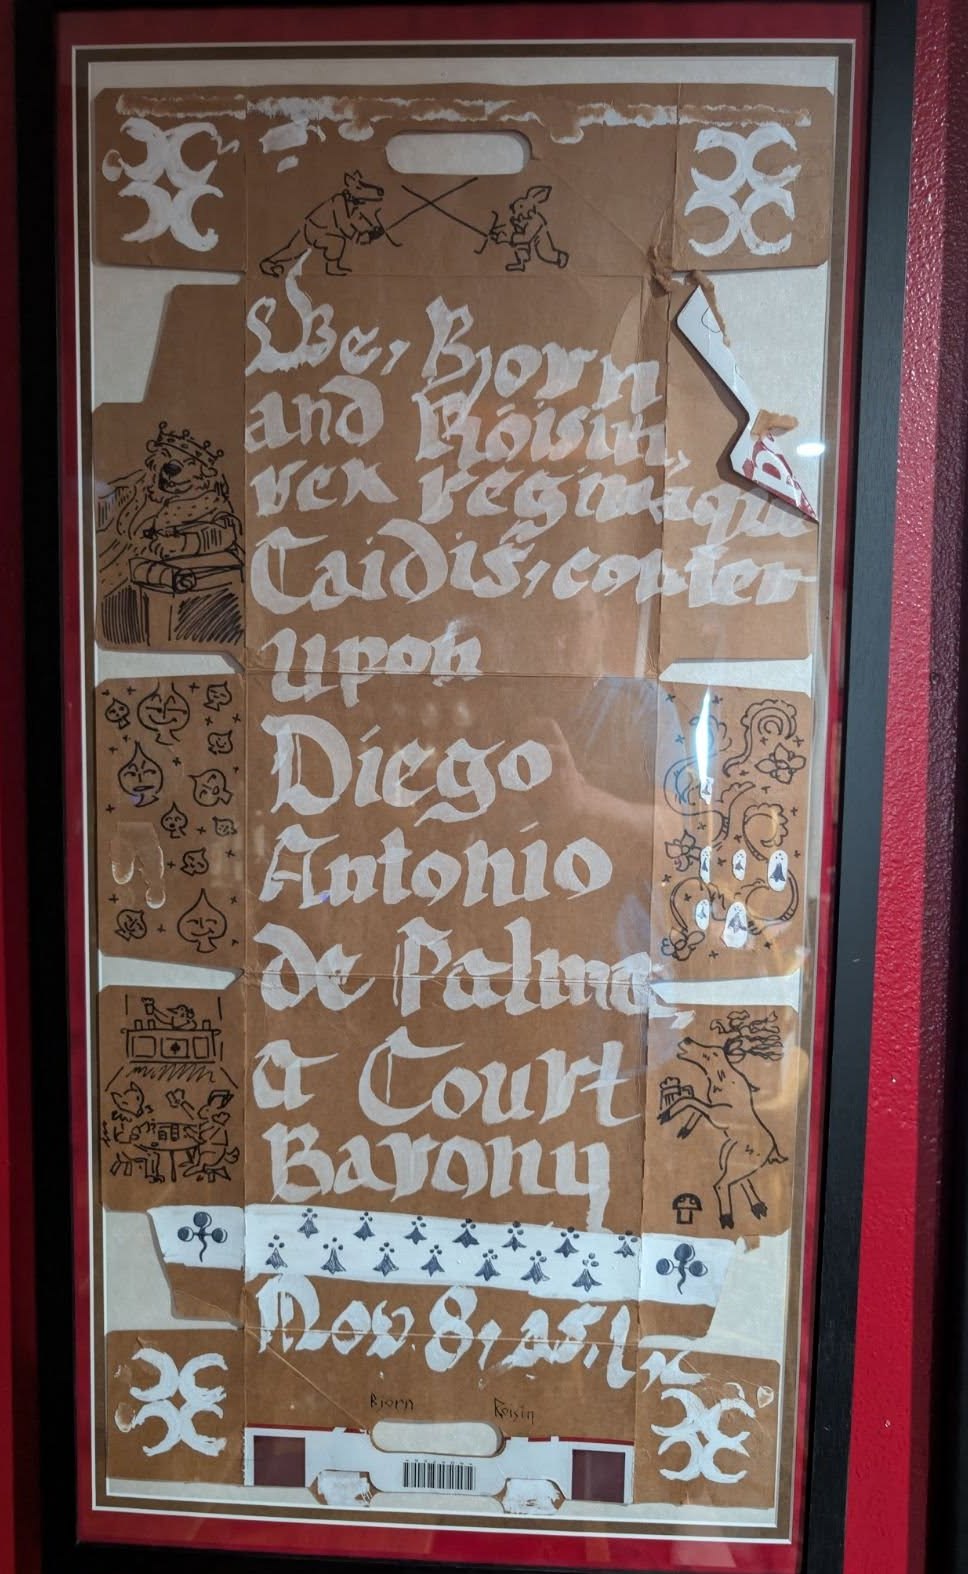 We, Bjorn
and Róisín,
rex reginaque
Caidis, confer
upon
Diego
Antonio
de Palma,
a Court
Barony
Nov. 8, a.s. lx
Bjorn Roisin